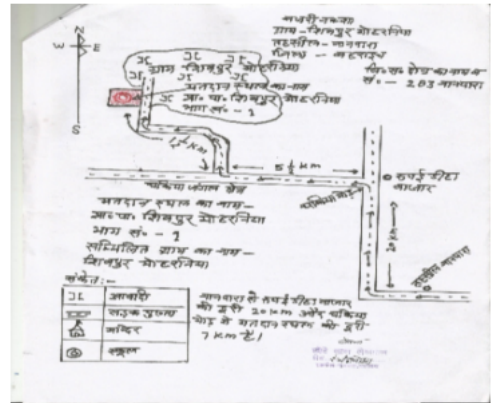 नजरी नक्शा
ग्राम - शिवपुर मोहरनिया
तहसील - नानपारा
जिला - बहराइच
वि०स० क्षेत्र का नाम व
सं० - 283 नानपारा
N
W
E
S
ग्राम शिवपुर मोहरनिया
मतदान स्थल का नाम
प्रा० पा० शिवपुर मोहरनिया
भाग सं० - 1
1½ KM
5½ KM
चकिया जंगल क्षेत्र
चकिया मोड़
रुपईडीहा
बाजार
तहसील नानपारा
मतदान स्थल का नाम -
प्रा० पा० शिवपुर मोहरनिया
भाग सं० - 1
सम्मिलित ग्राम का नाम -
शिवपुर मोहरनिया
संकेत :-
आबादी
सड़क पुख्ता
मन्दिर
स्कूल
नानपारा से रुपईडीहा बाजार
की दूरी 20 KM और चकिया
मोड़ से मतदान स्थल की दूरी
7 KM है।